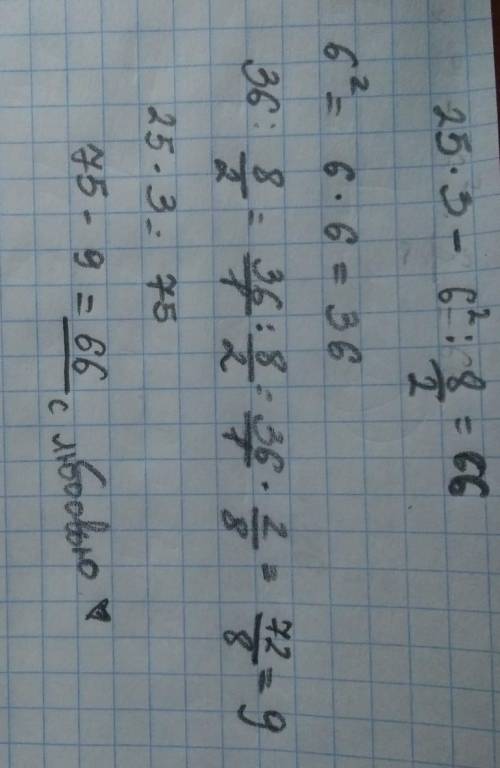 25 · 3 - 6² : 8/2 = 66
6² = 6 · 6 = 36
36 : 8/2 = 36/1 : 8/2 = 36/1 · 2/8 = 72/8 = 9
25 · 3 = 75
75 - 9 = 66
с любовью